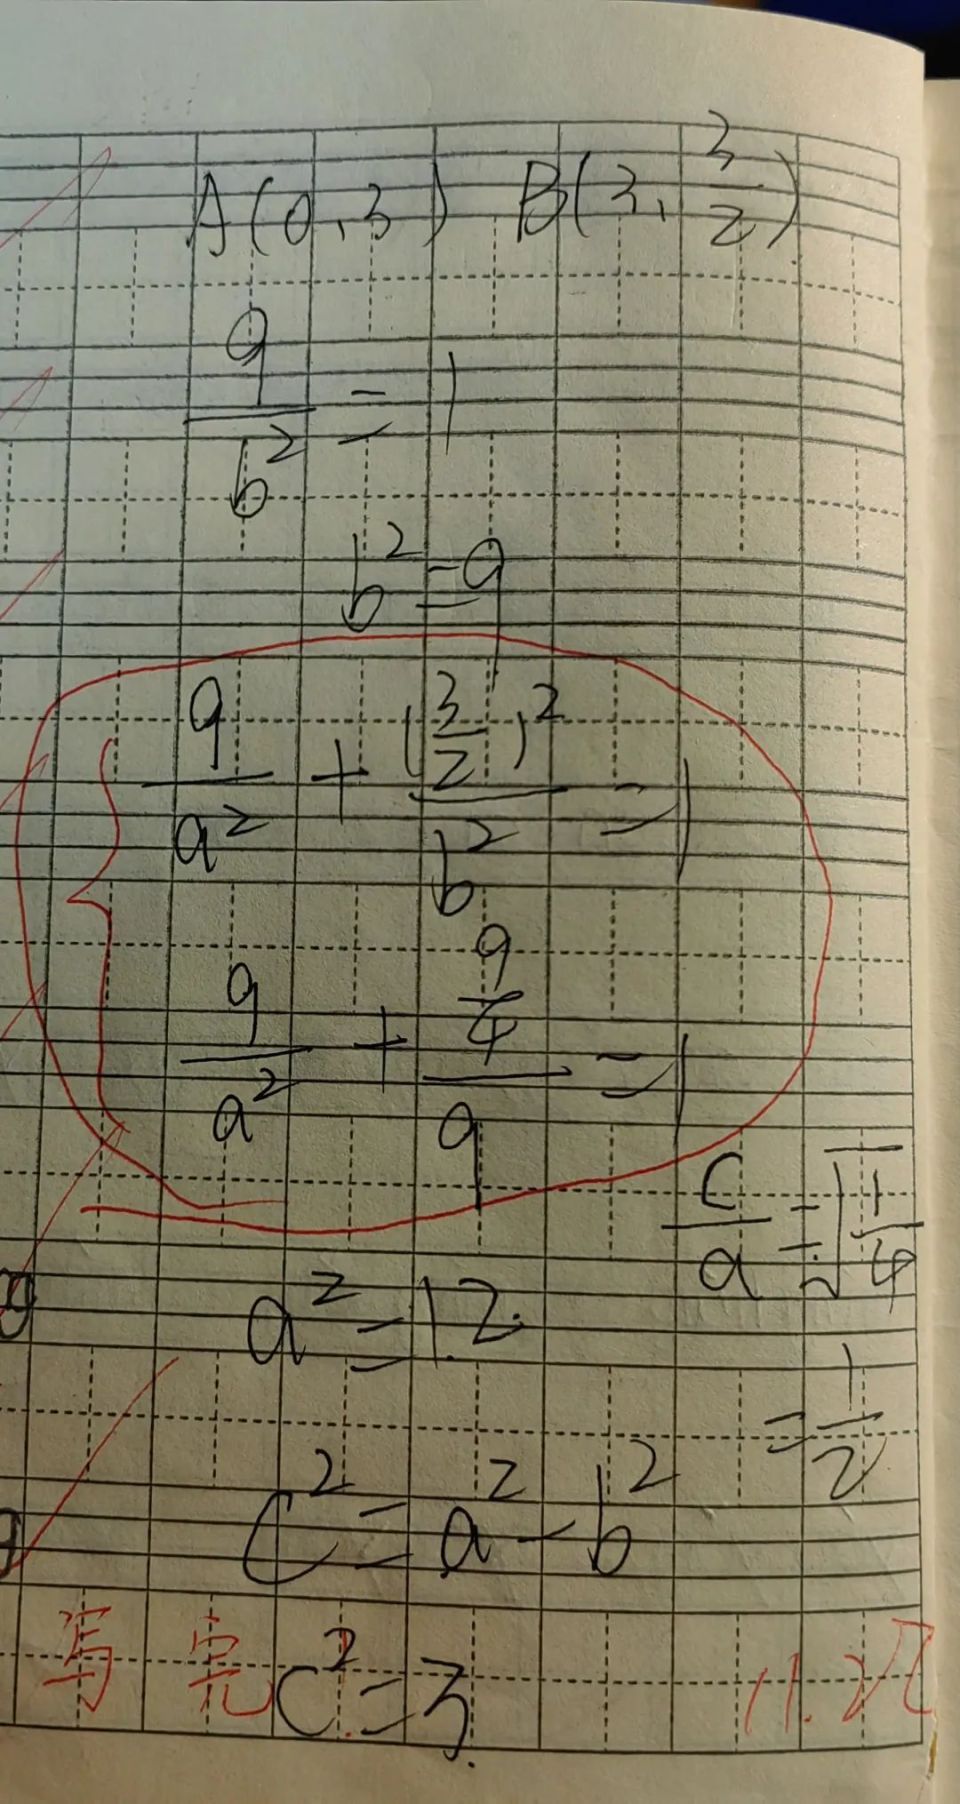 A(0,3) B(3,3/2)
9/b²=1
b²=9
9/a²+(3/2)²/b²=1
9/a²+(9/4)/9=1
c/a=√(1/4)
a²=12.
=1/2
c²=a²-b²
写完 c²=3.